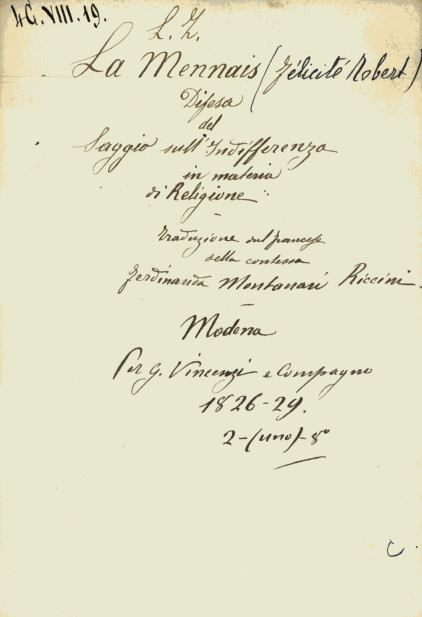 4G.VIII.19.
L. Z.
La Mennais (Félicité Robert)
Difesa
del
Saggio sull'Indifferenza
in materia
di Religione
Traduzione dal francese
della contessa
Ferdinanda Montanari Riccini
Modena
Per G. Vincenzi e Compagno
1826-29.
2-(uno)-8º
C.